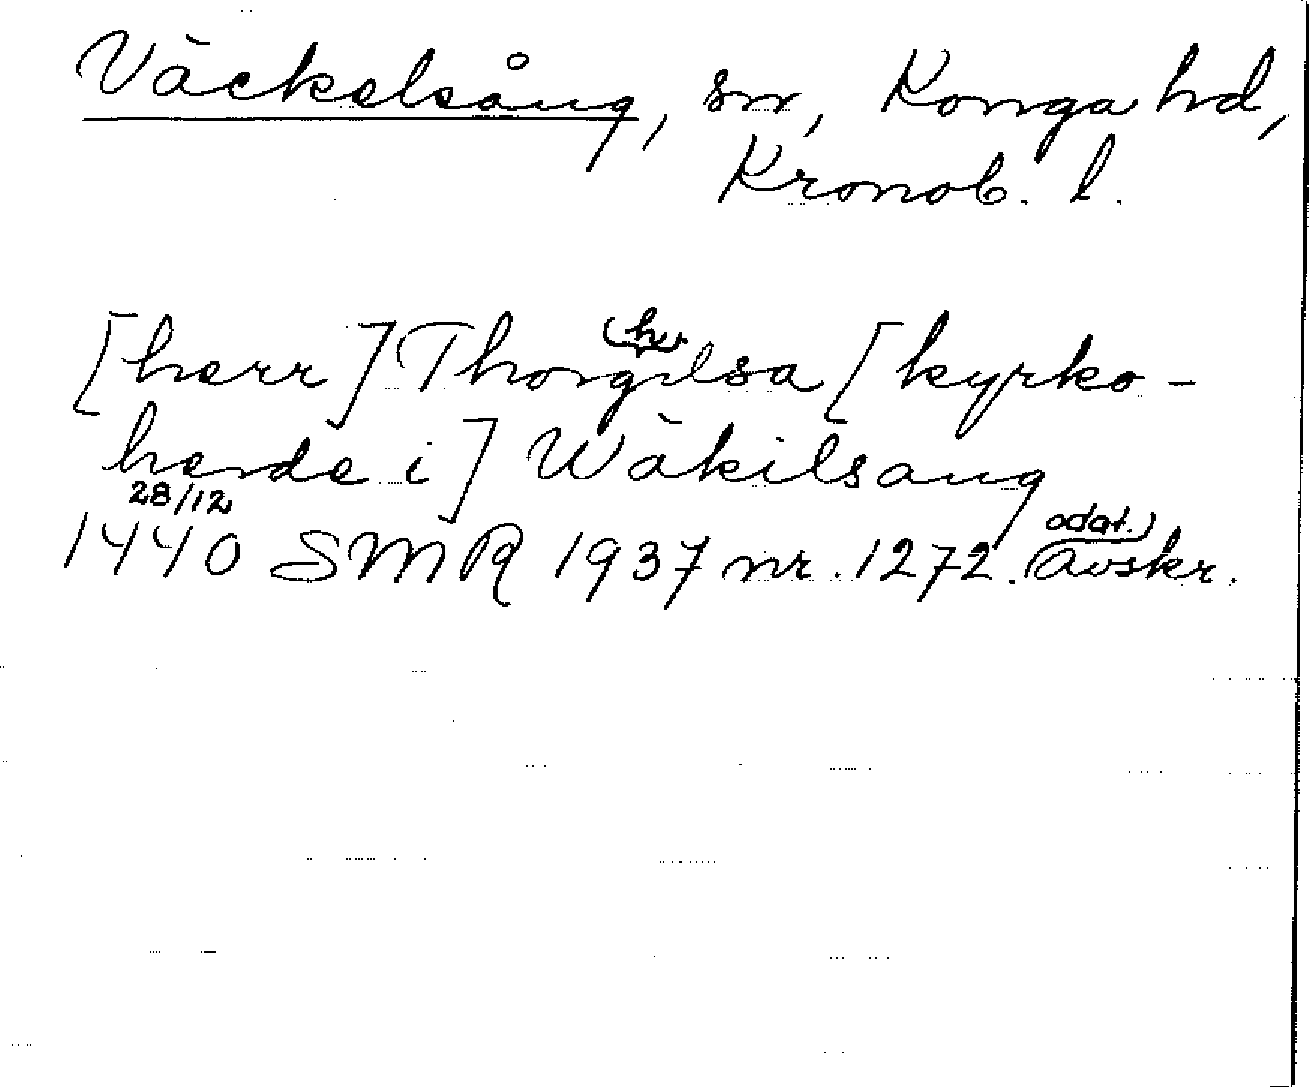 Väckelsång, sn, Konga hd,
Kronob. l.
[herr] Thorghilsa [kyrko-
herde i] Wäkilsang
28/12 1440 SMR 1937 nr. 1272. odat. avskr.